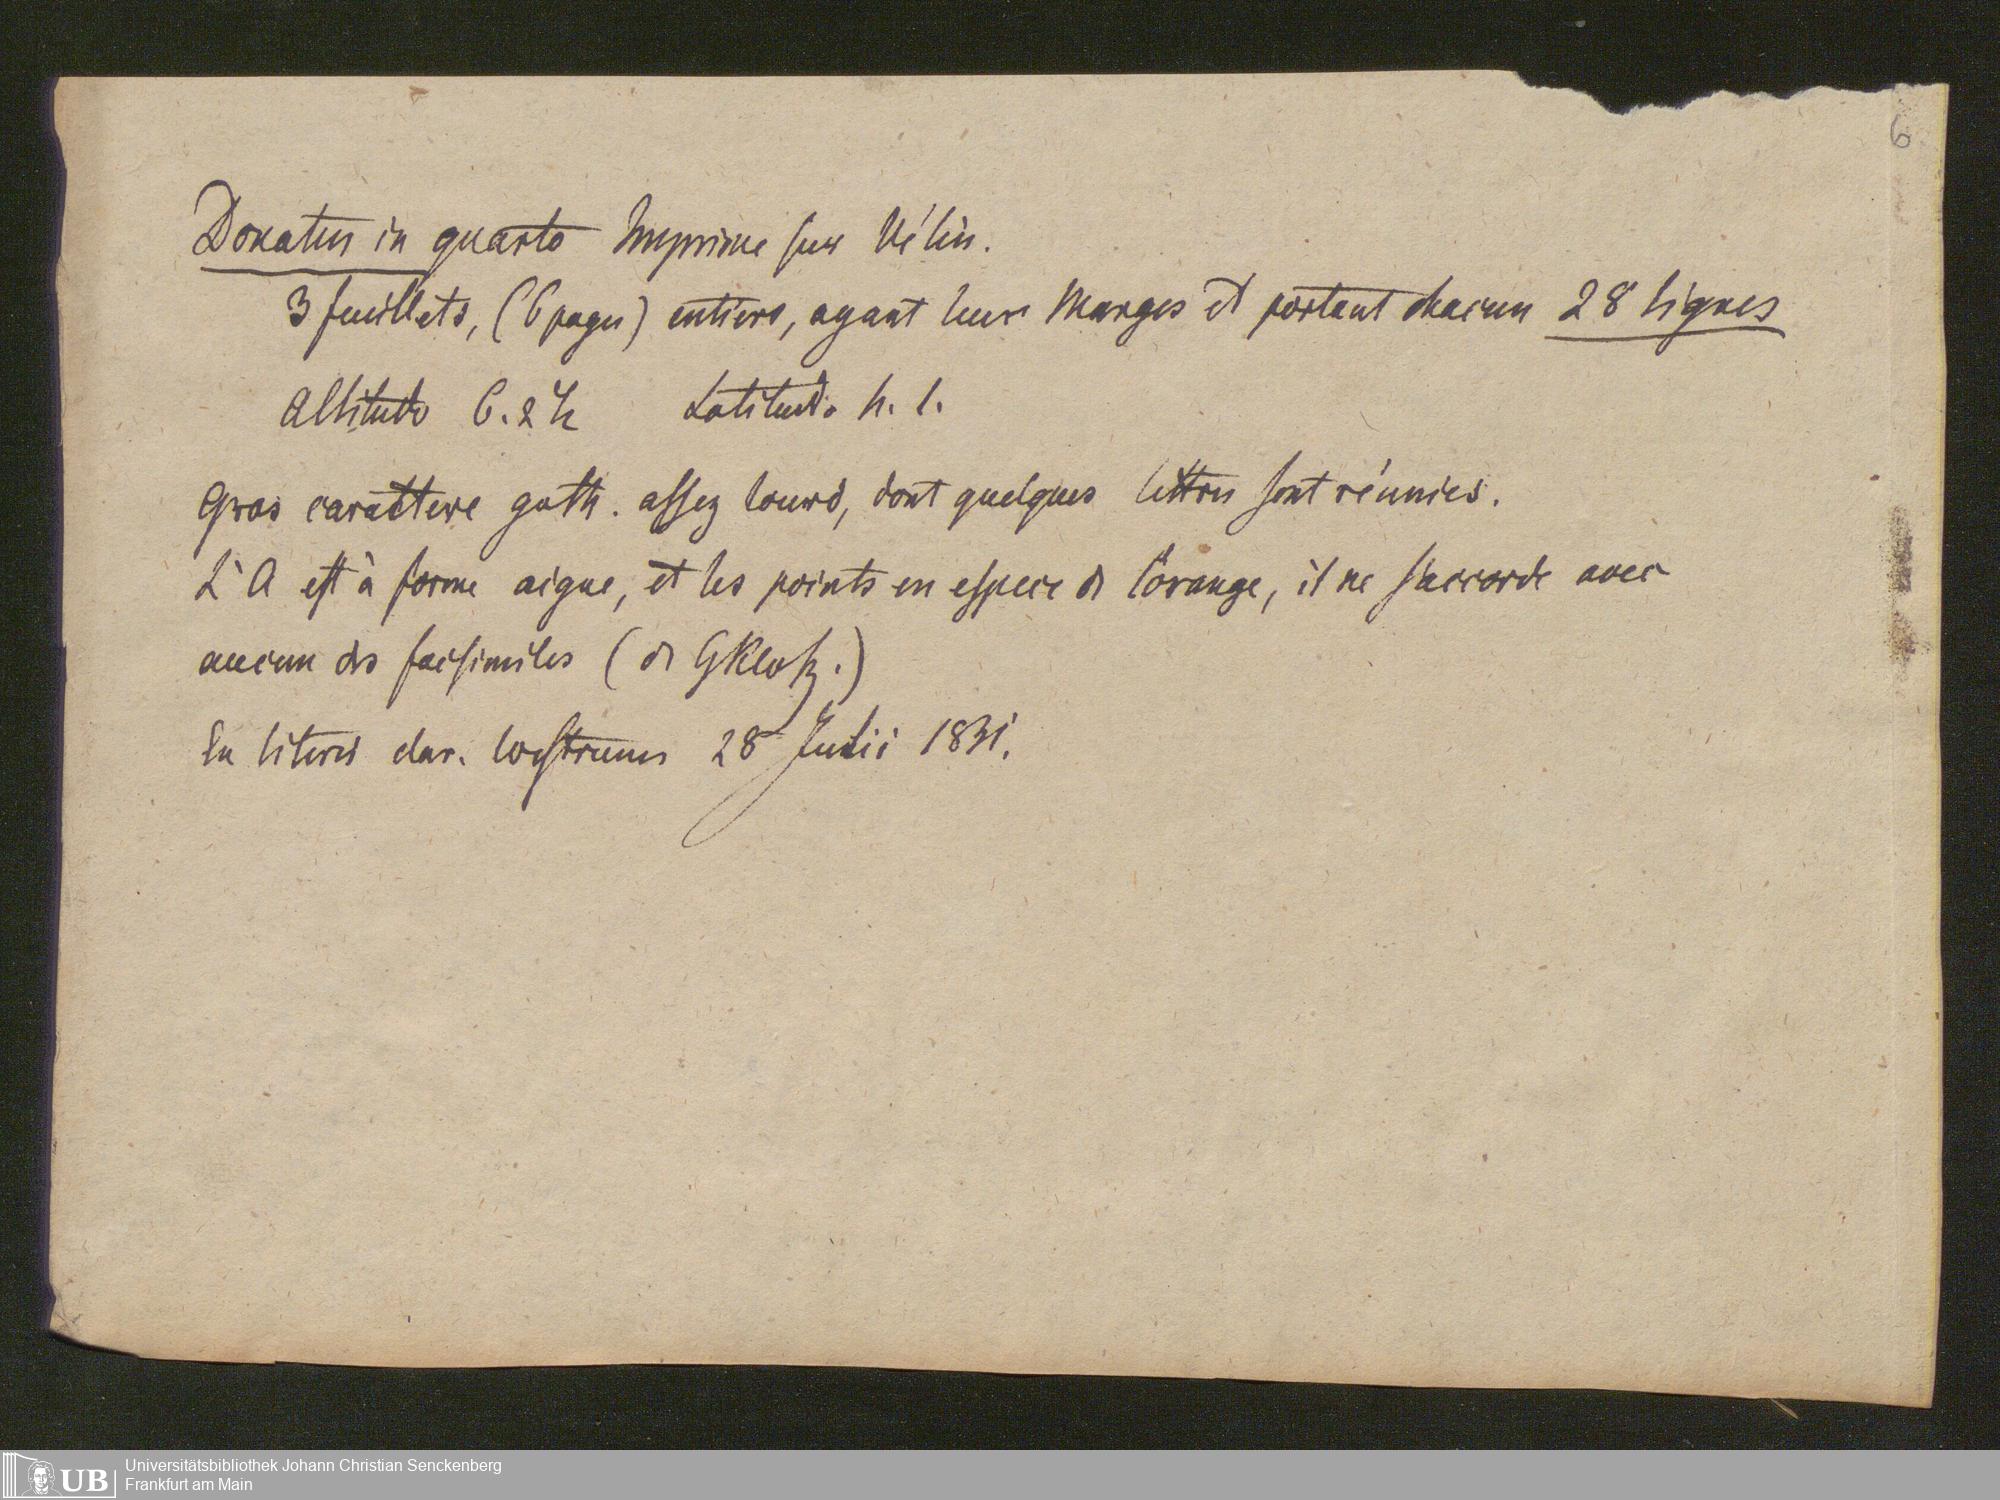 6
Donatus in quarto Imprime sur Vélin.
3 feuillets, (6 pages) entiers, ayant leurs Marges et portant chacun 28 lignes
Altitudo 6. 2 h Latitudo h. 1.
Gros carattere goth. assez lourd, dont quelques lettres sont réunies.
L'A est à forme aigue, et les points en espece de lorange, il ne s'accorde avec
aucun des facsimiles (de GKlotz.)
In literis dar. 28 Julii 1831.
Universitätsbibliothek Johann Christian Senckenberg
Frankfurt am Main
UB